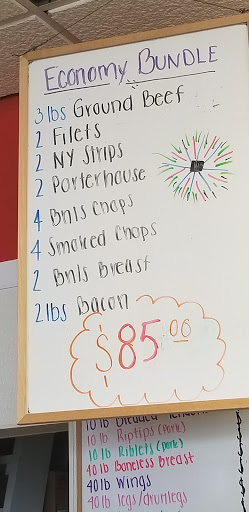 Economy BUNDLE
3 lbs Ground Beef
2 Filets
2 NY Strips
2 Porterhouse
4 Bnls Chops
4 Smoked Chops
2 Bnls Breast
2 lbs Bacon
$85.00
10 lb Breaded
10 lb Riptips (Pork)
10 lb Riblets (Pork)
40 lb Boneless Breast
40 lb Wings
40 lb legs/drumlegs